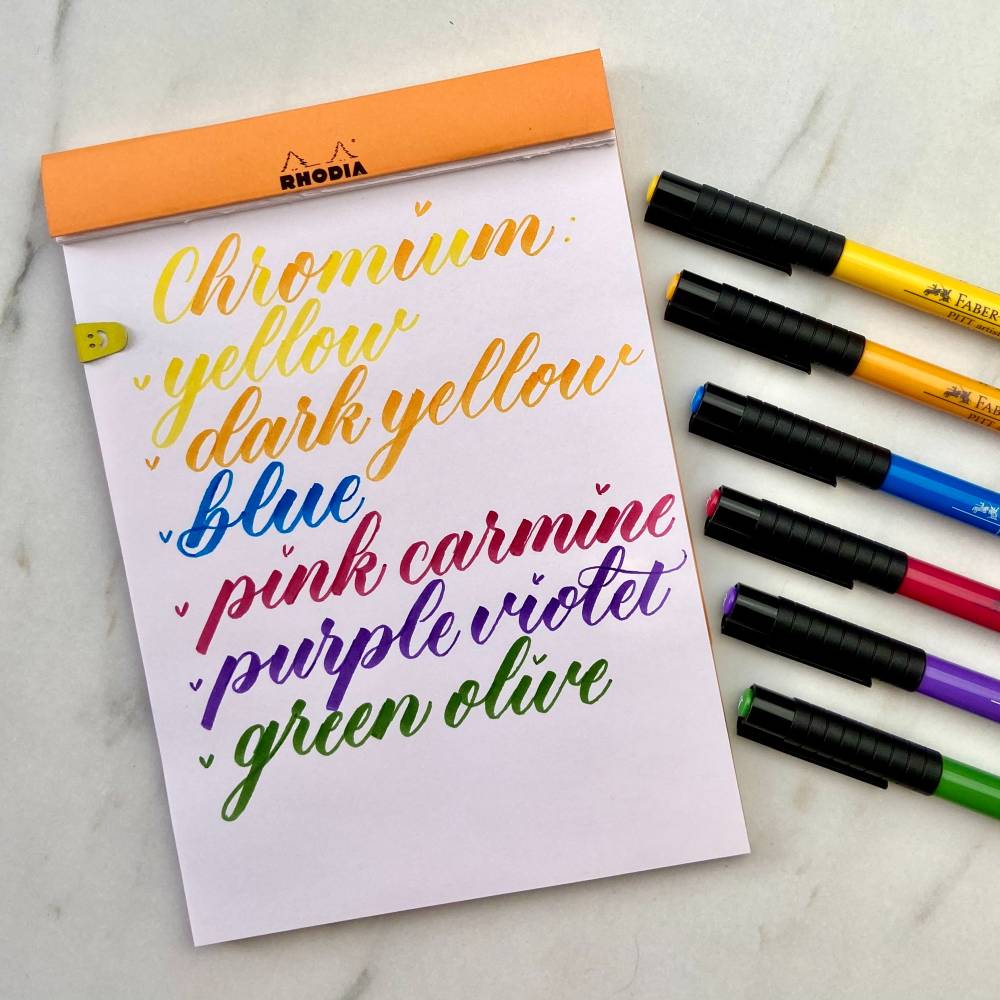 RHODIA
Chromium:
yellow
dark yellow
blue
pink carmine
purple violet
green olive
FABER-
PITT artis
FAB
PITT